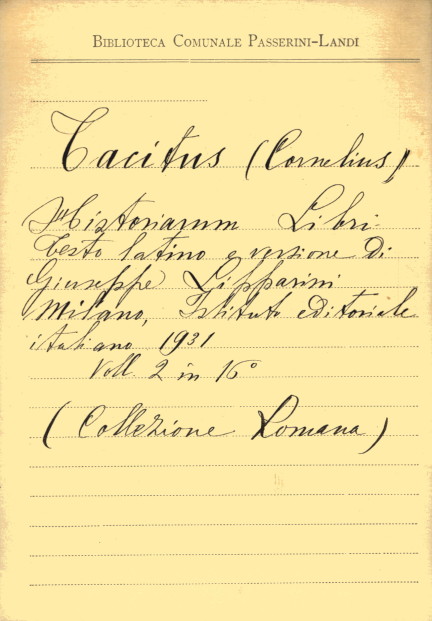 BIBLIOTECA COMUNALE PASSERINI-LANDI
Tacitus (Cornelius)
Historiarum Libri
Testo latino e versione di
Giuseppe Lipparini
Milano, Istituto editoriale
italiano 1931
Voll. 2 in 16°
(Collezione Romana)